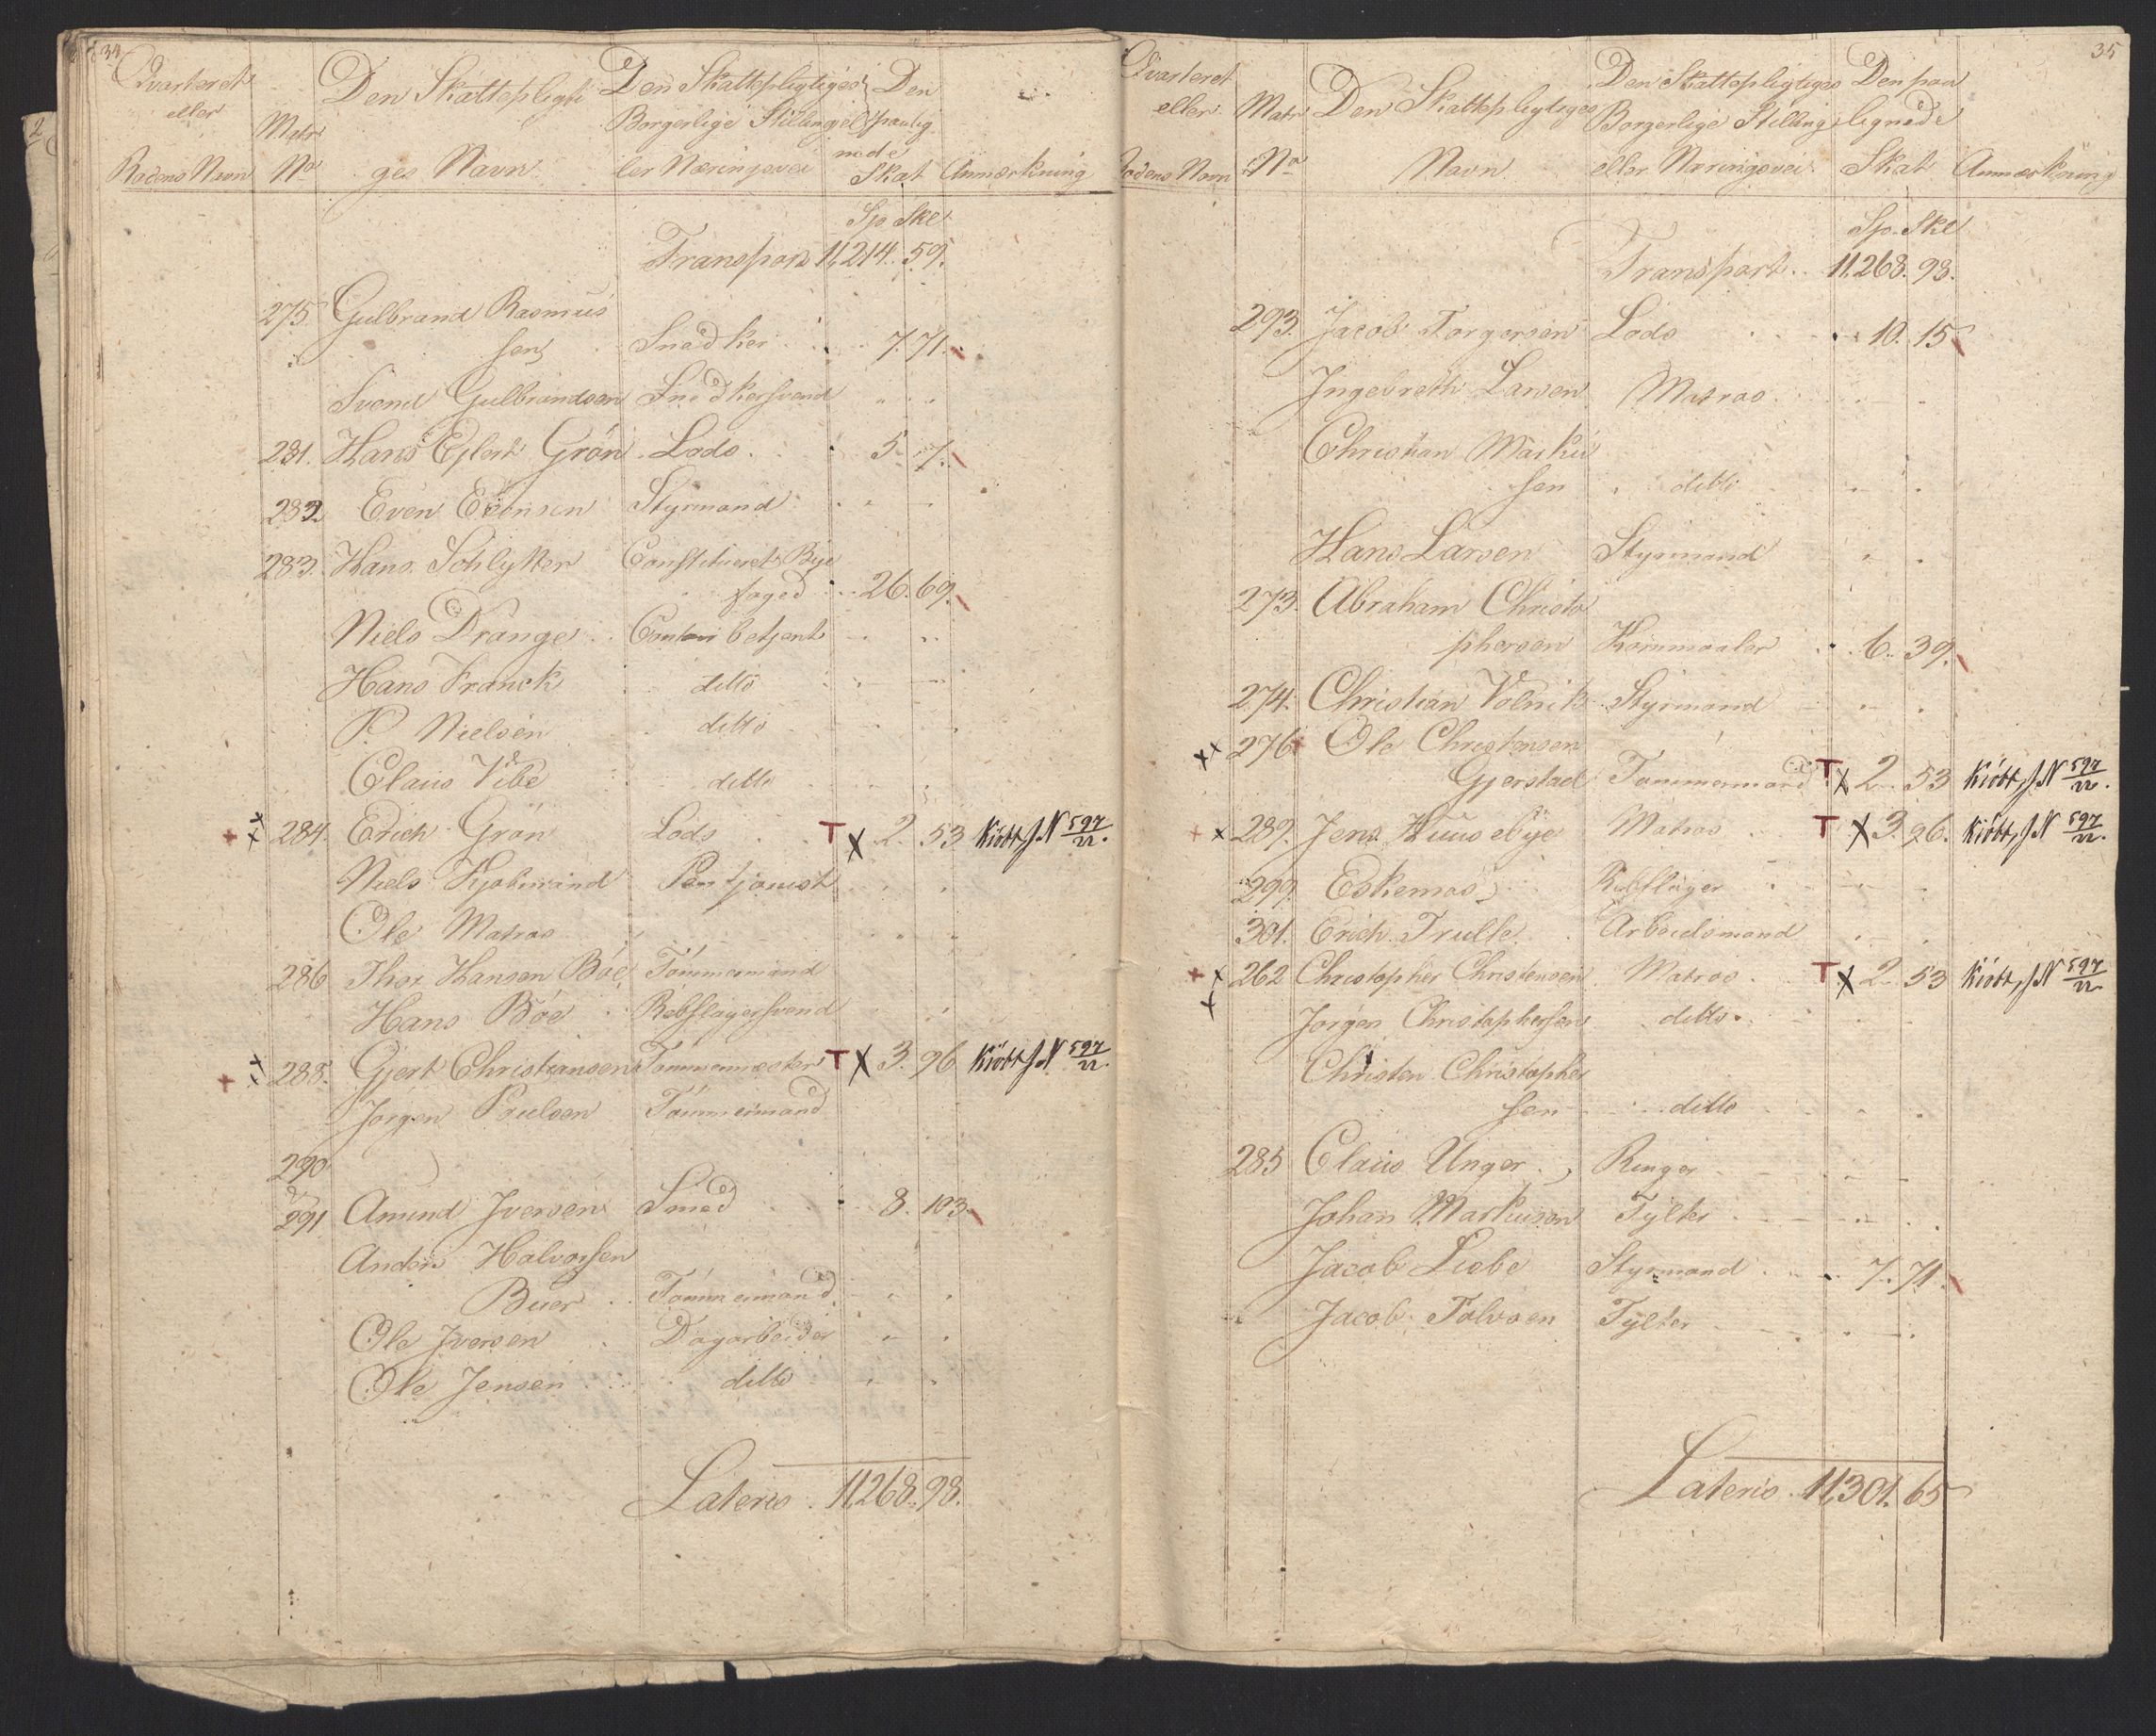 34
Qvarteret eller Rodens Navn
Matr No
Den Skattepligti ges Navn
Den Skattepligtiges Borgerlige Stilling el ler Næringsvei
Den paalig nede Skat
Anmærkning
Sp Skl
Transport 11,214. 59.
275. Gulbrand Rasmus
sen Snedker 7. 71.
Svend Gulbrandsen Snedkersvend
281. Hans Ejlert Grön Lods 5. 7.
282. Even Evensen Styrmand
283. Hans Schlytter Constitueret Bye
foged 26. 69.
Niels Drange Contoirbetjent
Hans Franck ditto
P. Nielsen ditto
Claus Vibe ditto
+ 284. Erich Grön Lods T X 2. 53 Kiött, J. N 597/22.
Niels Kjobmand
Ole Matros
286 Thor Hansen Böe Tömmermand
Hans Böe Rebslagersvend
+ 288. Gjert Christiansen Tömmermester T X 3. 96 Kiött J. N 597/22.
Jörgen Poulsen Tömmermand
290
291 Amund Iversen Smed 8. 103.
Anders Halvorsen
Buer Tömmermand
Ole Iversen Dagarbeider
Ole Jensen ditto
Lateris 11268. 98.
35
Qvarteret eller Rodens Navn
Matr No
Den Skattepligtiges Navn
Den Skattepligtiges Borgerlige Stilling eller Næringsvei
Den paa lignede Skat
Anmærkning
Sp. Skl
Transport 11.268. 98.
293. Jacob Torgersen Lods 10. 15
Ingebreth Larsen Matros
Christian Marku
sen ditto
Hans Larsen Styrmand
273. Abraham Christo
phersen Kornmaaler 6. 39.
274. Christian Volnik Styrmand
xx 276 Ole Christensen
Gjerstad Tömmermand T X 2. 53 Kiött, J. N 597/22.
+ x 289. Jens Huusebye Matros T X 3. 96. Kiött, J. N 597/22.
299. Eskemos Rebslager
301. Erich Trulse Arbeidsmand
+ x 262 Christopher Christensen Matros T X 2. 53 Kiött, J. N 597/22
Jörgen Christophersen ditto
Christen Christopher
sen ditto
285 Claus Unger Ringer
Johan Markusen Tylter
Jacob Liebe Styrmand 7. 71.
Jacob Tolvsen Tylter
Lateris 11,301. 65